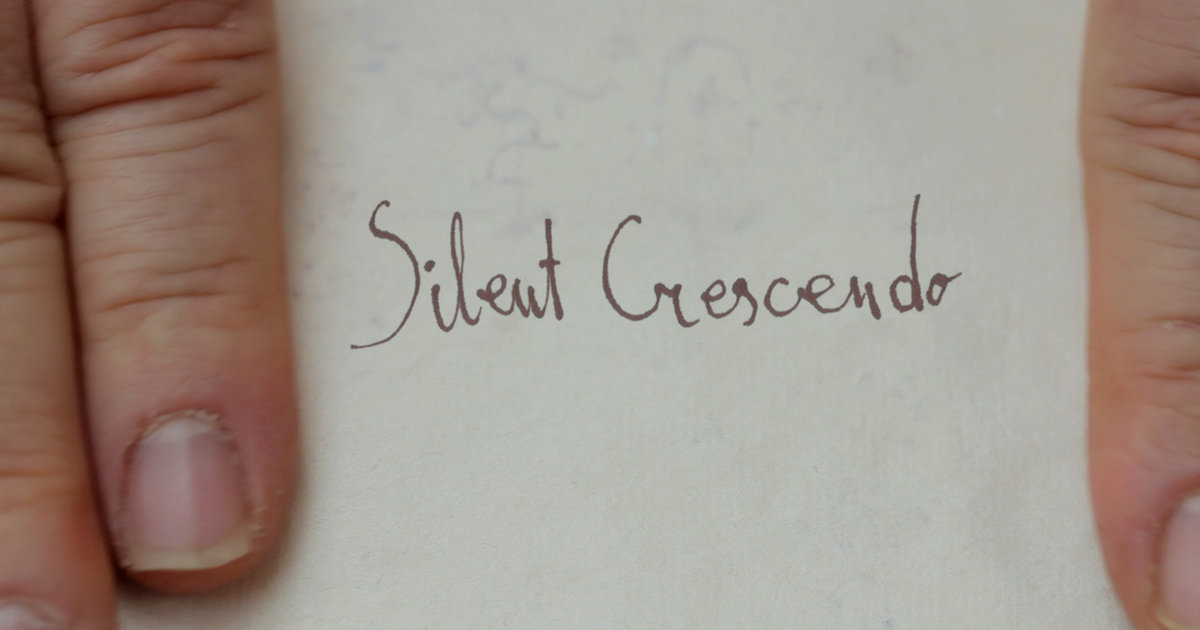 Silent Crescendo